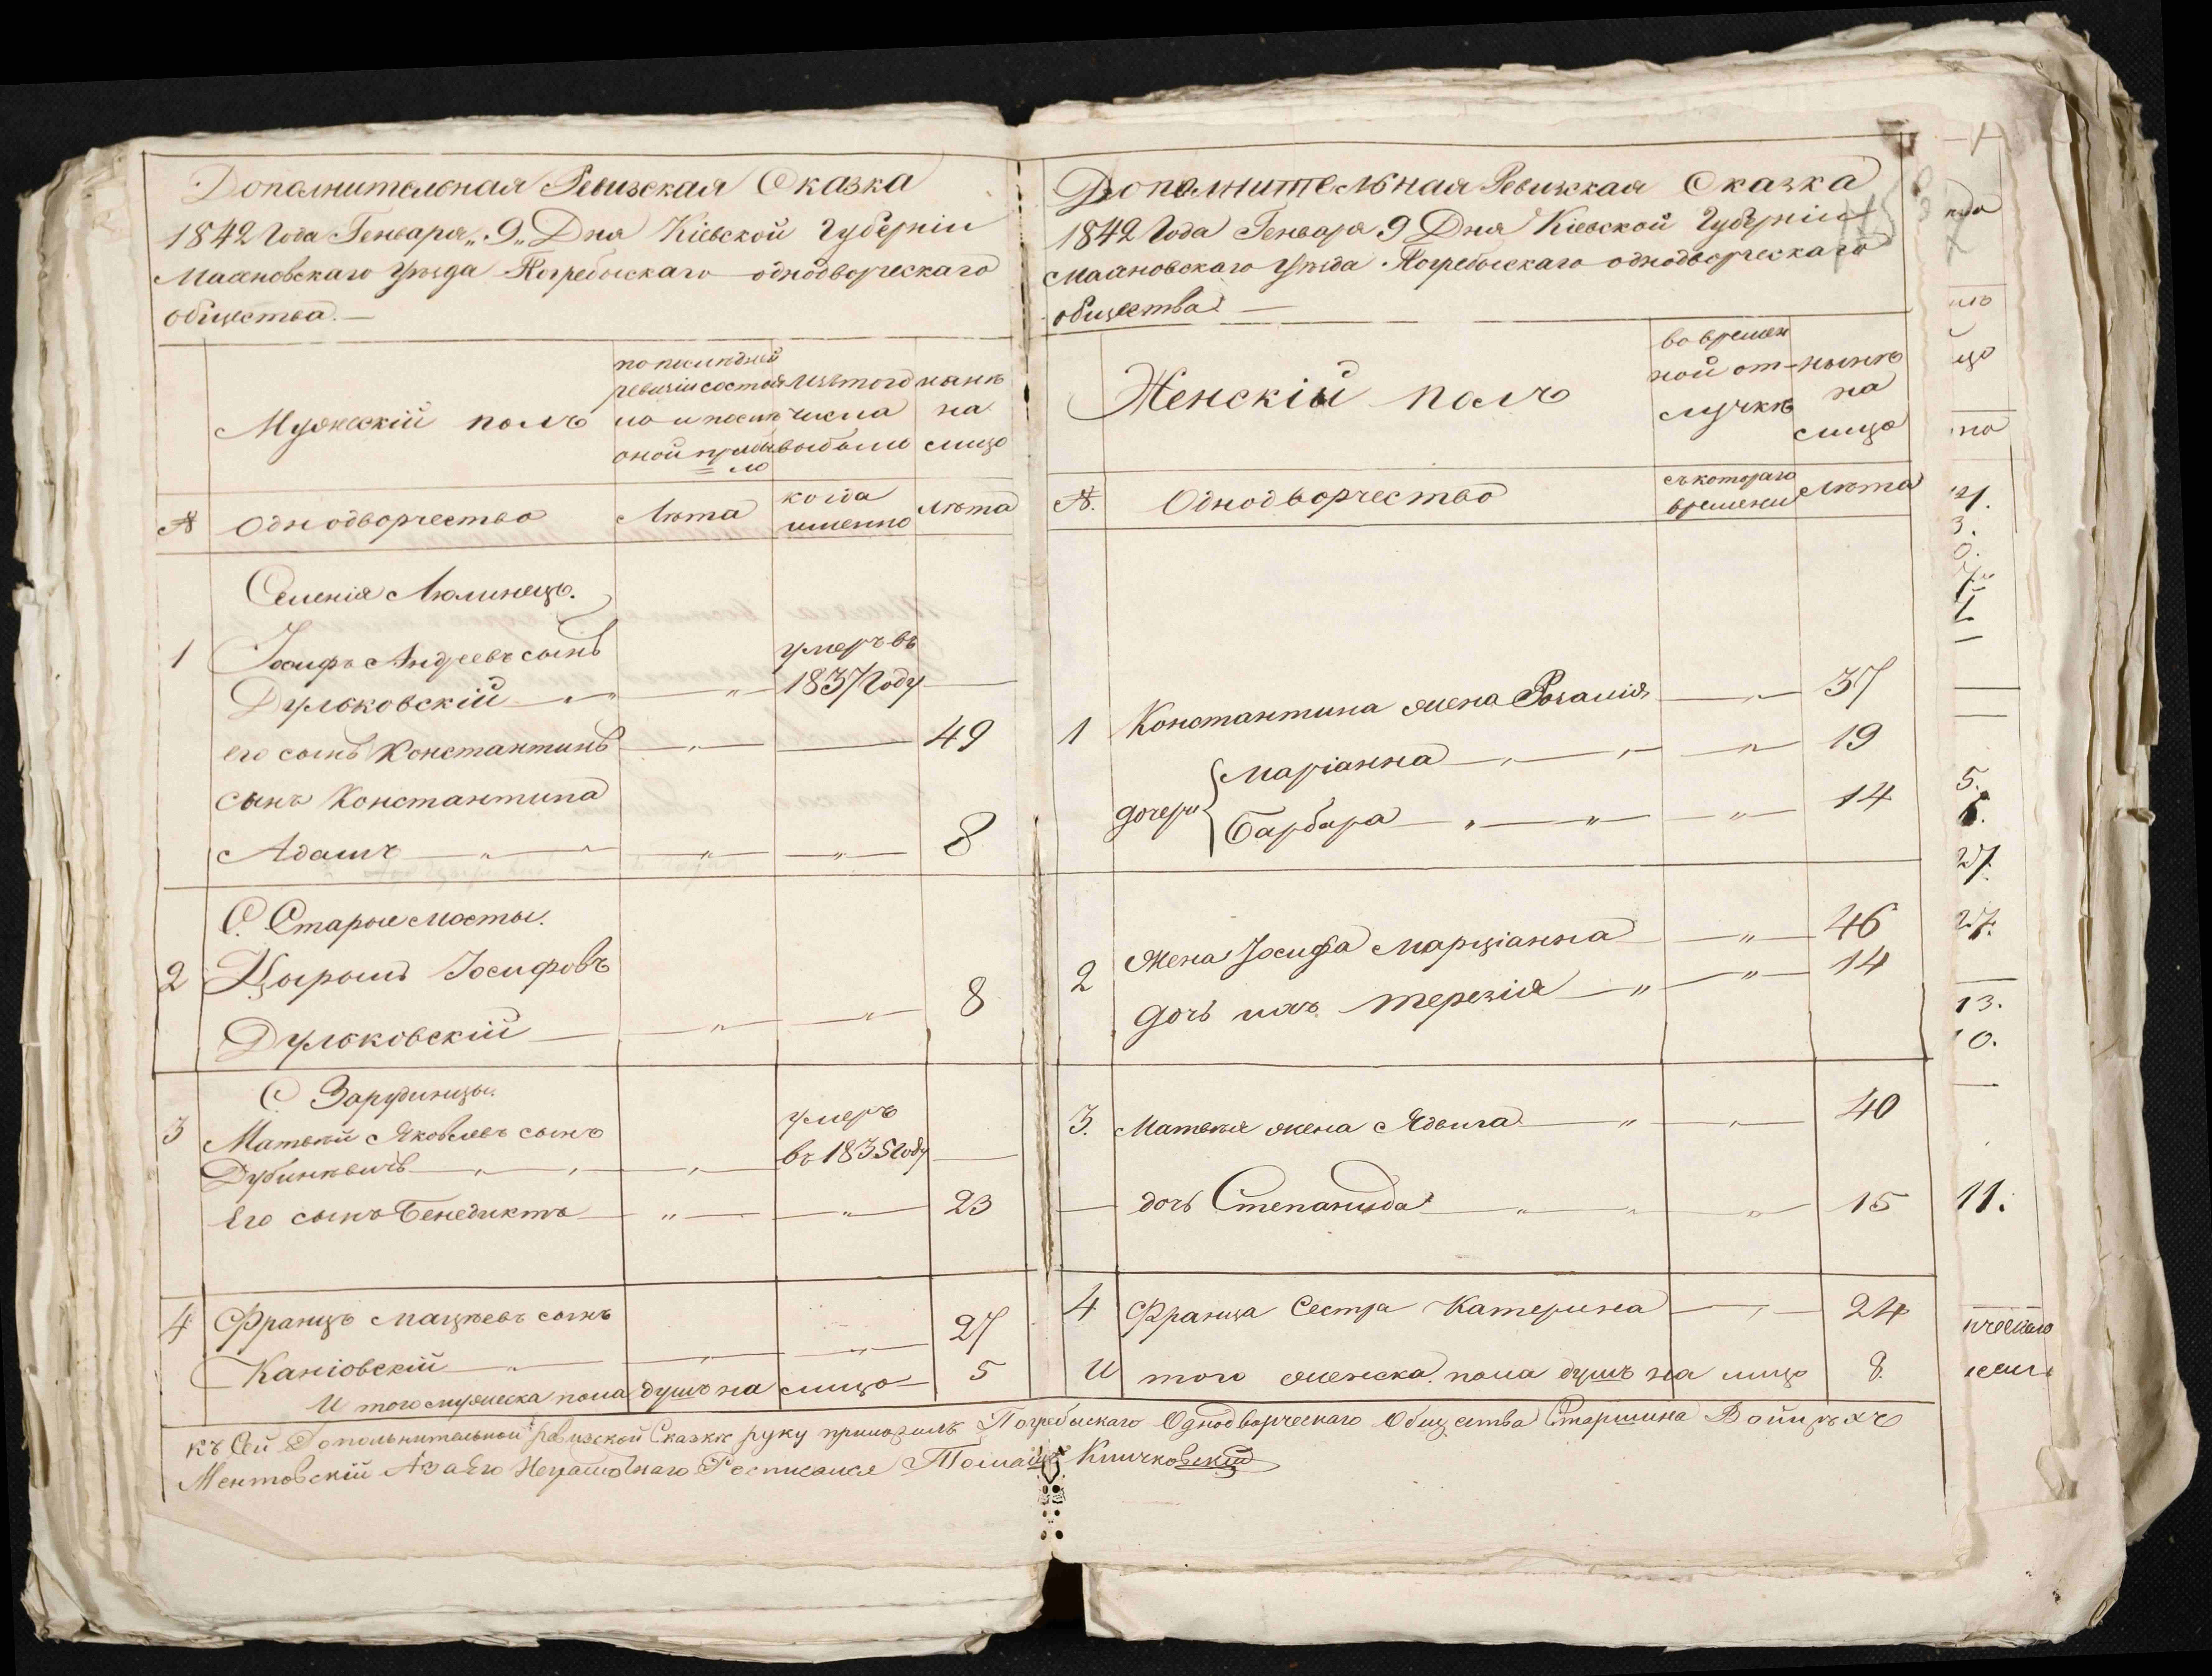 Дополнительная Ревизская Сказка
1842 Года Генваря „9„ Дня Кіевской Губерніи
Махновскаго уѣзда Погребыскаго однодворческаго
общества. —
Мужескій полъ
по последней
ревизіи состоя
ло и после
оной прибы
ло
изъ того
числа
выбыли
нынѣ
на
лицо
№ Однодворчество Лѣта когда
именно Лѣта
Селенія Люлинецъ.
1 Іосифъ Андреевъ сынъ умеръ въ
Дульковскій — „ — „ — 1837 Году —
его сынъ Константинъ — „ — — 49
сынъ Константина
Адамъ — „ — „ — „ — — „ — 8
С. Старые мосты.
2 Цыромъ Іосифовъ
Дульковскій — — „ — — „ — 8
С. Зарудинцы.
3 Матвѣй Яковлевъ сынъ умеръ
Дубинѣвичъ — „ — „ — „ — въ 1835 году —
Его сынъ Бенедиктъ — „ — — „ — 23
4 Францъ Мацѣевъ сынъ
Каніовскій — „ — „ — — „ — 27
И того мужеска пола душъ на лицо — 5
Дополнительная Ревизская Сказка
1842 Года Генваря 9 Дня Кіевской Губерніи
Махновскаго уѣзда Погребыскаго однодворческаго
общества —
Женскій полъ
во времен
ной от-
лучкѣ
нынѣ
на
лицо
№. Однодворчество съ котораго
времени Лѣта
1 Константина жена Розалія — „ — 37
дочери { Маріанна — „ — „ — — „ — 19
Барбара — „ — „ — — „ — 14
2 Жена Іосифа Марціанна — „ — 46
дочь ихъ Терезія — „ — „ — 14
3. Матвея жена Ядвига — „ — „ — 40
— дочь Степанида — „ — „ — „ — 15
4 Франца Сестра Катерина — „ — 24
И того женска пола душъ на лицо 8.
къ Сей Допольнительной ревизской Сказкѣ руку приложилъ Погребыскаго Однодворческаго Общества Старшина Войцѣхъ
Ментовскій А за Его Неграмотнаго Росписался Томашъ Кличковскій